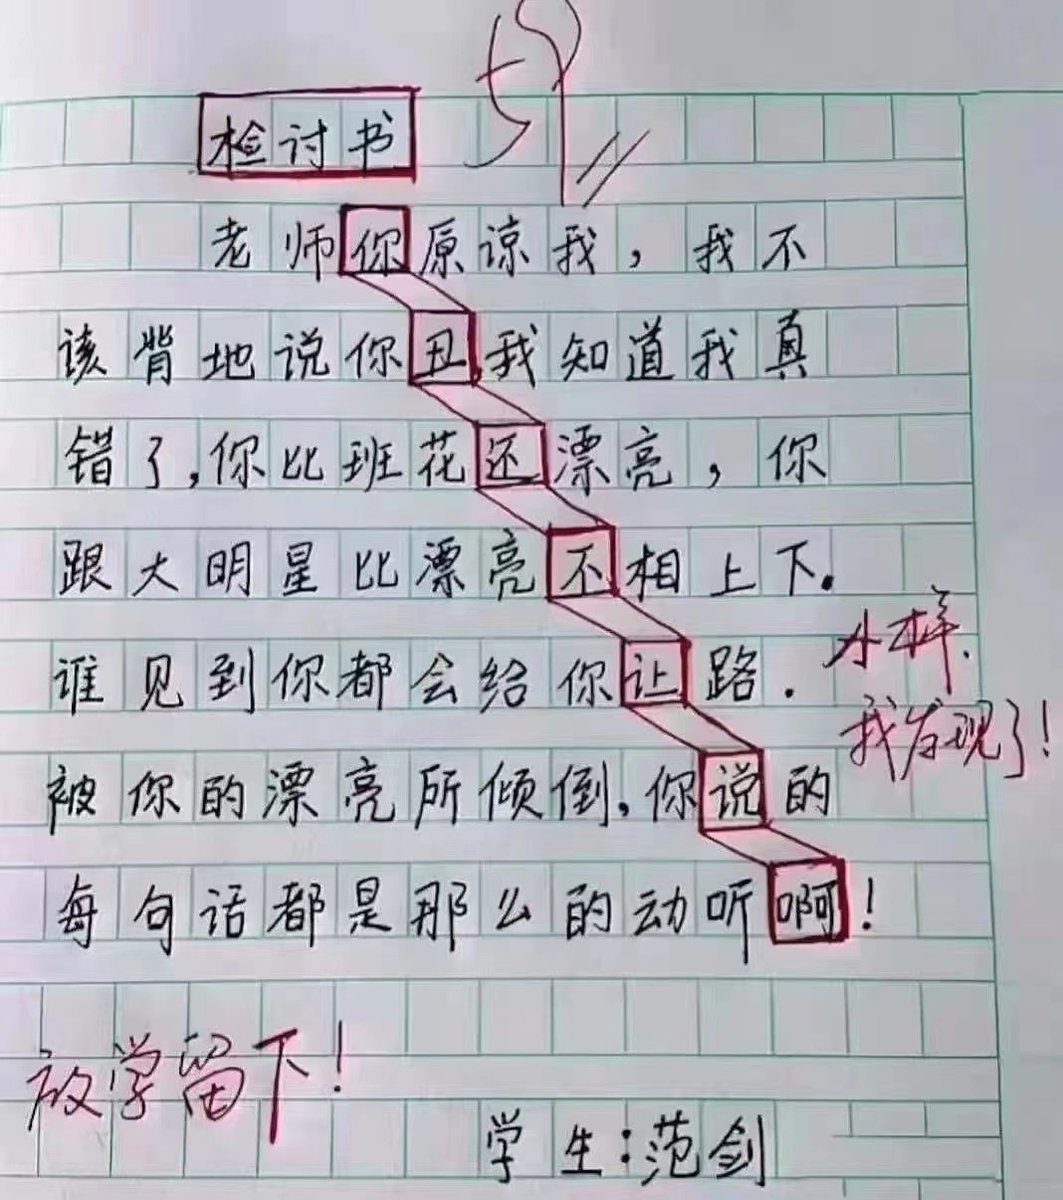 检讨书
老师你原谅我，我不
该背地说你丑，我知道我真
错了，你比班花还漂亮，你
跟大明星比漂亮不相上下。
谁见到你都会给你让路.
小样.
我发现了！
被你的漂亮所倾倒，你说的
每句话都是那么的动听啊！
放学留下！
学生：范剑